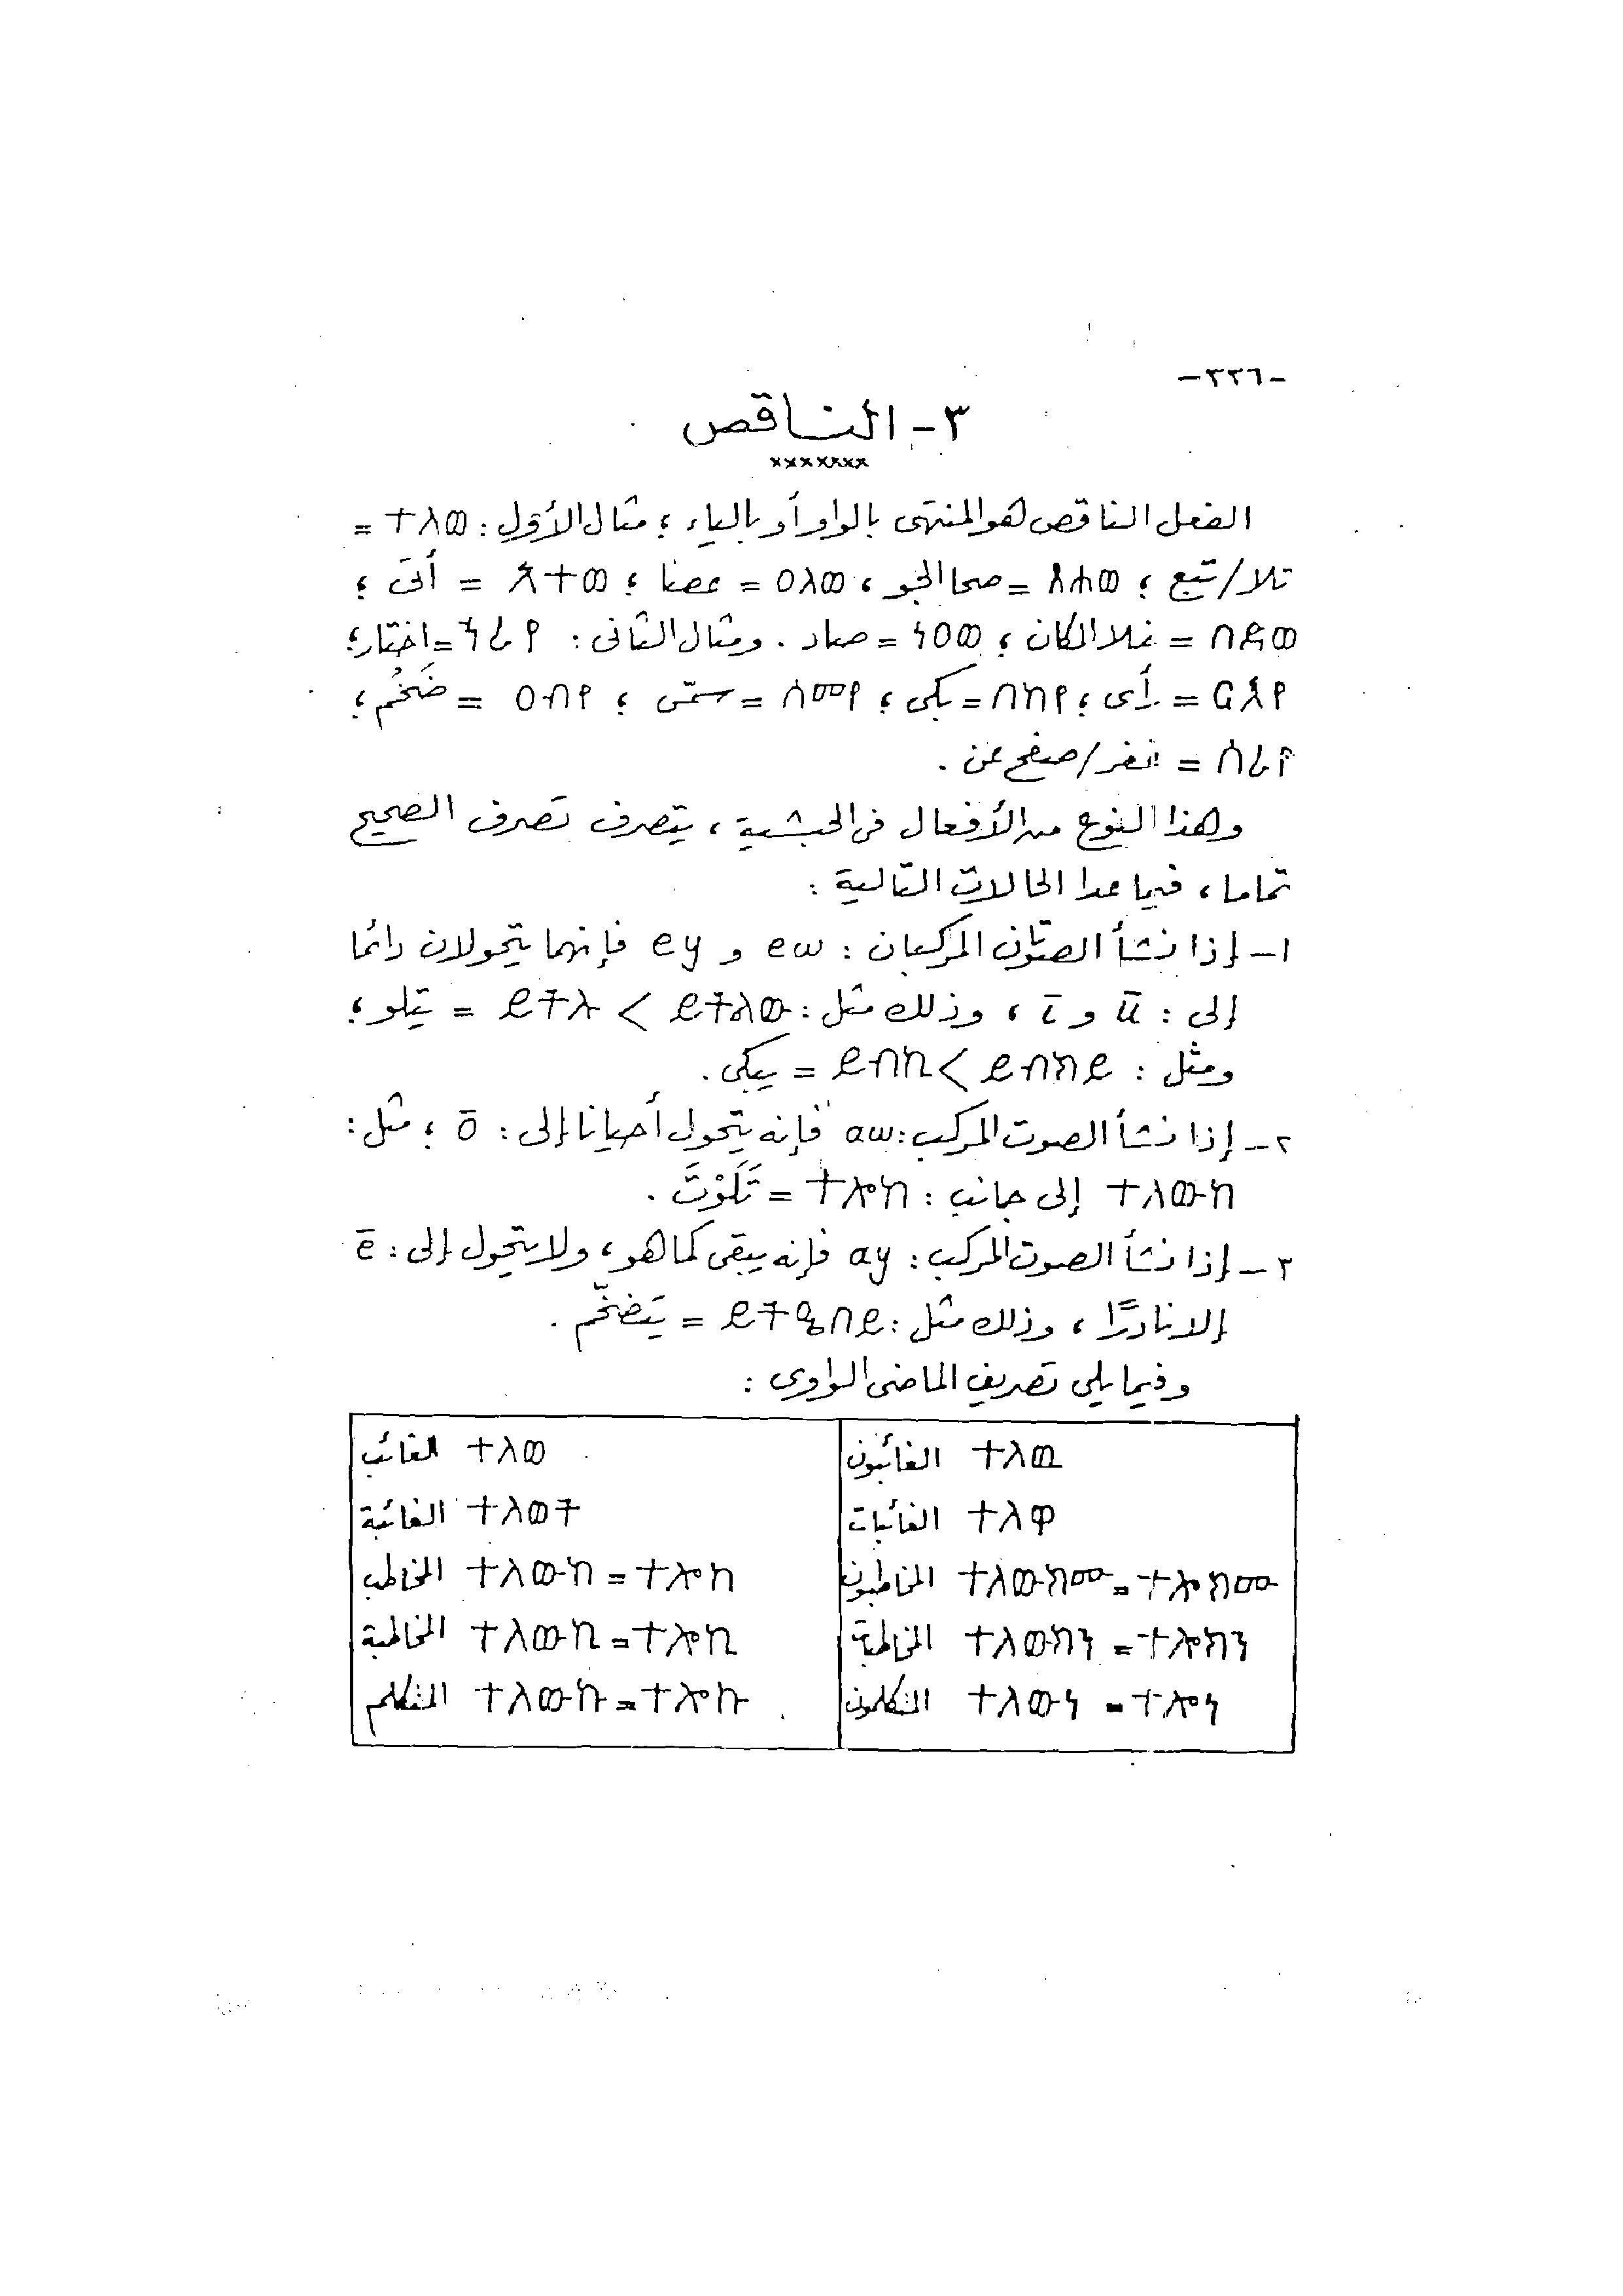 -٣٣٦-
٣- الناقص
×××××××
الفعل الناقص هو المنتهى بالواو أو بالياء ؛ مثال الأول : ተለወ =
تلا/تبع ؛ = صحا الجو ، ዐለወ = عصا ؛ አተወ = أتى ؛
በደወ = خلا المكان ؛ ነዐወ = صاد . ومثال الثانى : ኀረየ = اختار ؛
ርእየ = رأى ؛ በከየ = بكى ؛ ሰመየ = سمّى ؛ ዐብየ = ضَخُم ؛
ሰረየ = غفر/صفح عن .
وهذا النوع من الأفعال فى الحبشية ، يتصرف تصرف الصحيح
تماما ، فيما عدا الحالات التالية :
١- إذا نشأ الصوتان المركبان : ew و ey فإنهما يتحولان دائما
إلى : ū و ī ، وذلك مثل : ይተልው > ይተሉ = يتلو ؛
ومثل : ይብክይ > ይብኪ = يبكى .
٢- إذا نشأ الصوت المركب : aw فإنه يتحول أحيانا إلى : ō ؛ مثل :
ተለውከ إلى جانب : ተሎከ = تَلَوْتَ .
٣- إذا نشأ الصوت المركب : ay فإنه يبقى كما هو ، ولا يتحول إلى : ē
إلا نادرًا ، وذلك مثل : ይትዐበይ = يَتضخّم .
وفيما يلى تصريف الماضى الواوى :
ተለወ الغائب ተለዉ الغائبون
ተለወት الغائبة ተለዋ الغائبات
ተለውከ = ተሎከ المخاطب ተለውክሙ = ተሎክሙ المخاطبون
ተለውኪ = ተሎኪ المخاطبة ተለውክን = ተሎክን
ተለውኩ = ተሎኩ المتكلم ተለውነ = ተሎነ المتكلمون